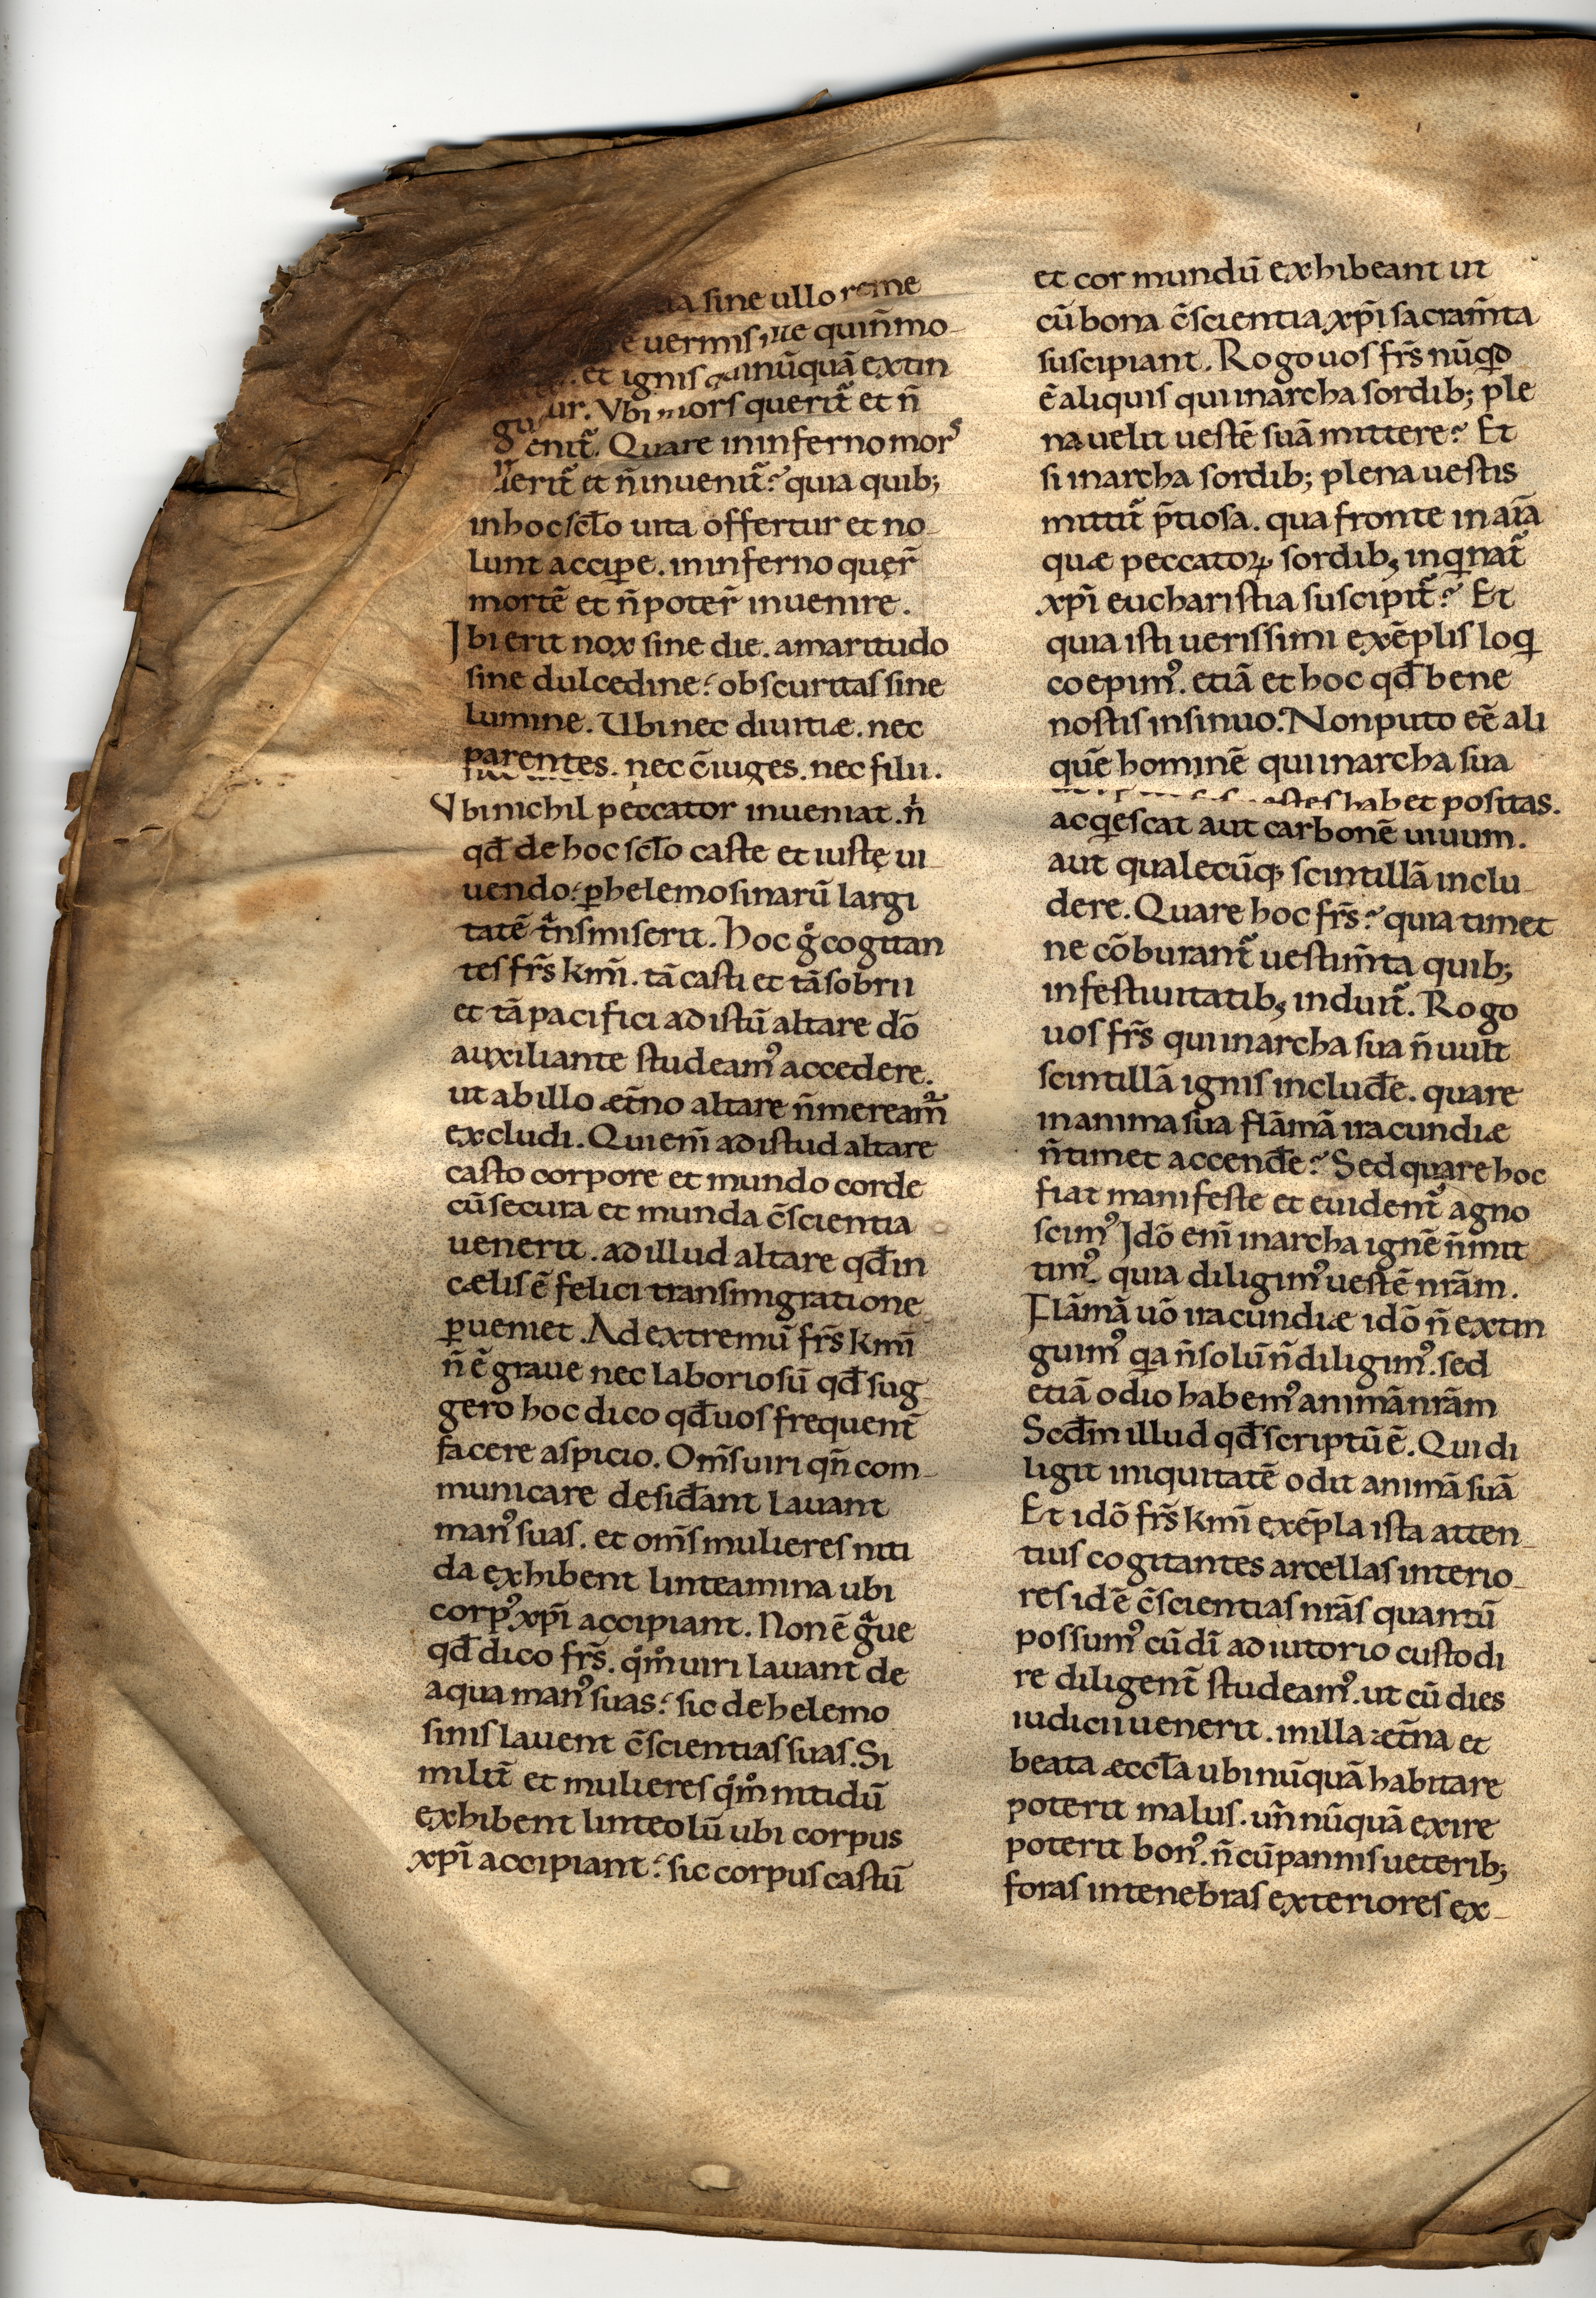 sine ullo reme
uermis ille qui n̄ mo-
et ignis qui nūquā extin
gu ur. Vbi mors querit᷑ et n̄
enit᷑. Quare in inferno mors
erit᷑ et n̄ inuenit᷑? quia quib;
in hoc scl̄o uita offertur et no-
lunt accipe. in inferno quęr̄
mortē et n̄ poter̄ inuenire.
Ibi erit nox sine die. amaritudo
sine dulcedine: obscuritas sine
lumine. Ubi nec diuitiæ. nec
parentes. nec c̄iuges. nec filii.
Vbi nichil peccator inueniat. n̄
qđ de hoc scl̄o caste et iustę ui-
uendo: ꝑ helemosinarū largi
tatē tͣnsmiserit. Hoc gͦ cogitan
tes fr̄s km̄i. tā casti et tā sobrii
et tā pacifici ad istū altare dō
auxiliante studeamꝰ accedere.
ut ab illo æt̄no altare n̄ meream᷑
excludi. Qui eni̅ ad istud altare
casto corpore et mundo corde
cū secura et munda c̄scientia
uenerit. ad illud altare qđ in
cælis ē felici transmigratione
ꝑueniet. Ad extremū fr̄s km̄i
n̄ ē graue nec laboriosū qđ sug-
gero hoc dico qđ uos frequent̄
facere aspicio. Om̄s uiri qn̄ com-
municare desiđant lauant
manꝰ suas. et om̄s mulieres niti
da exhibent linteamina ubi
corpꝰ xp̄i accipiant. Non ē gͣue
qđ dico fr̄s. qͦmͦ uiri lauant de
aqua manꝰ suas: sic de helemo
sinis lauent c̄scientias suas. Si
milit̄ et mulieres qͦmͦ nitidū
exhibent linteolū ubi corpus
xp̄i accipiant: sic corpus castū
et cor mundū exhibeant ut
cū bona c̄scientia xp̄i sacram̄ta
suscipiant. Rogo uos fr̄s nūqd
ē aliquis qui in archa sordib; ple
na uelit uestē suā mittere? Et
si in archa sordib; plena uestis
mittit᷑ p̄tiosa. qua fronte in aīā
quæ peccatoꝝ sordib; inqinat᷑
xp̄i eucharistia suscipit᷑? Et
quia isti uerissimi exēplis loqi
coepimꝰ. etiā et hoc qđ bene
nostis insinuo. Non puto eē ali
quē hominē qui in archa sua
uestes habet positas.
acqiescat aut carbonē uiuum.
aut qualecūqꝫ scintillā inclu-
dere. Quare hoc fr̄s? quia timet
ne cōburant᷑ uestim̄ta quib;
in festiuitatib; induit᷑. Rogo
uos fr̄s qui in archa sua n̄ uult
scintillā ignis includ̄e. quare
in anima sua flāmā iracundiæ
n̄ timet accend̄e? Sed quare hoc
fiat manifeste et euident᷑ agno
scimꝰ Idō eni̅ in archa ignē n̄ mit
timꝰ. quia diligimꝰ uestē nrām.
Flāmā uō iracundiæ idō n̄ extin
guimꝰ qia n̄ solū n̄ diligimꝰ. sed
etiā odio habemꝰ animā nrām
Scđm illud qđ scriptū ē. Qui di
ligit iniquitatē odit animā suā
Et idō fr̄s km̄i exēpla ista atten-
tius cogitantes arcellas interio-
res id ē c̄scientias nrās quantū
possumꝰ cū dī adiutorio custodi
re diligent̄ studeamꝰ. ut cū dies
iudicii uenerit. in illa æt̄na et
beata æccl̄a ubi nūquā habitare
poterit malus. un̄ nūquā exire
poterit bonꝰ. n̄ cū pannis ueterib;
foras in tenebras exteriores ex-